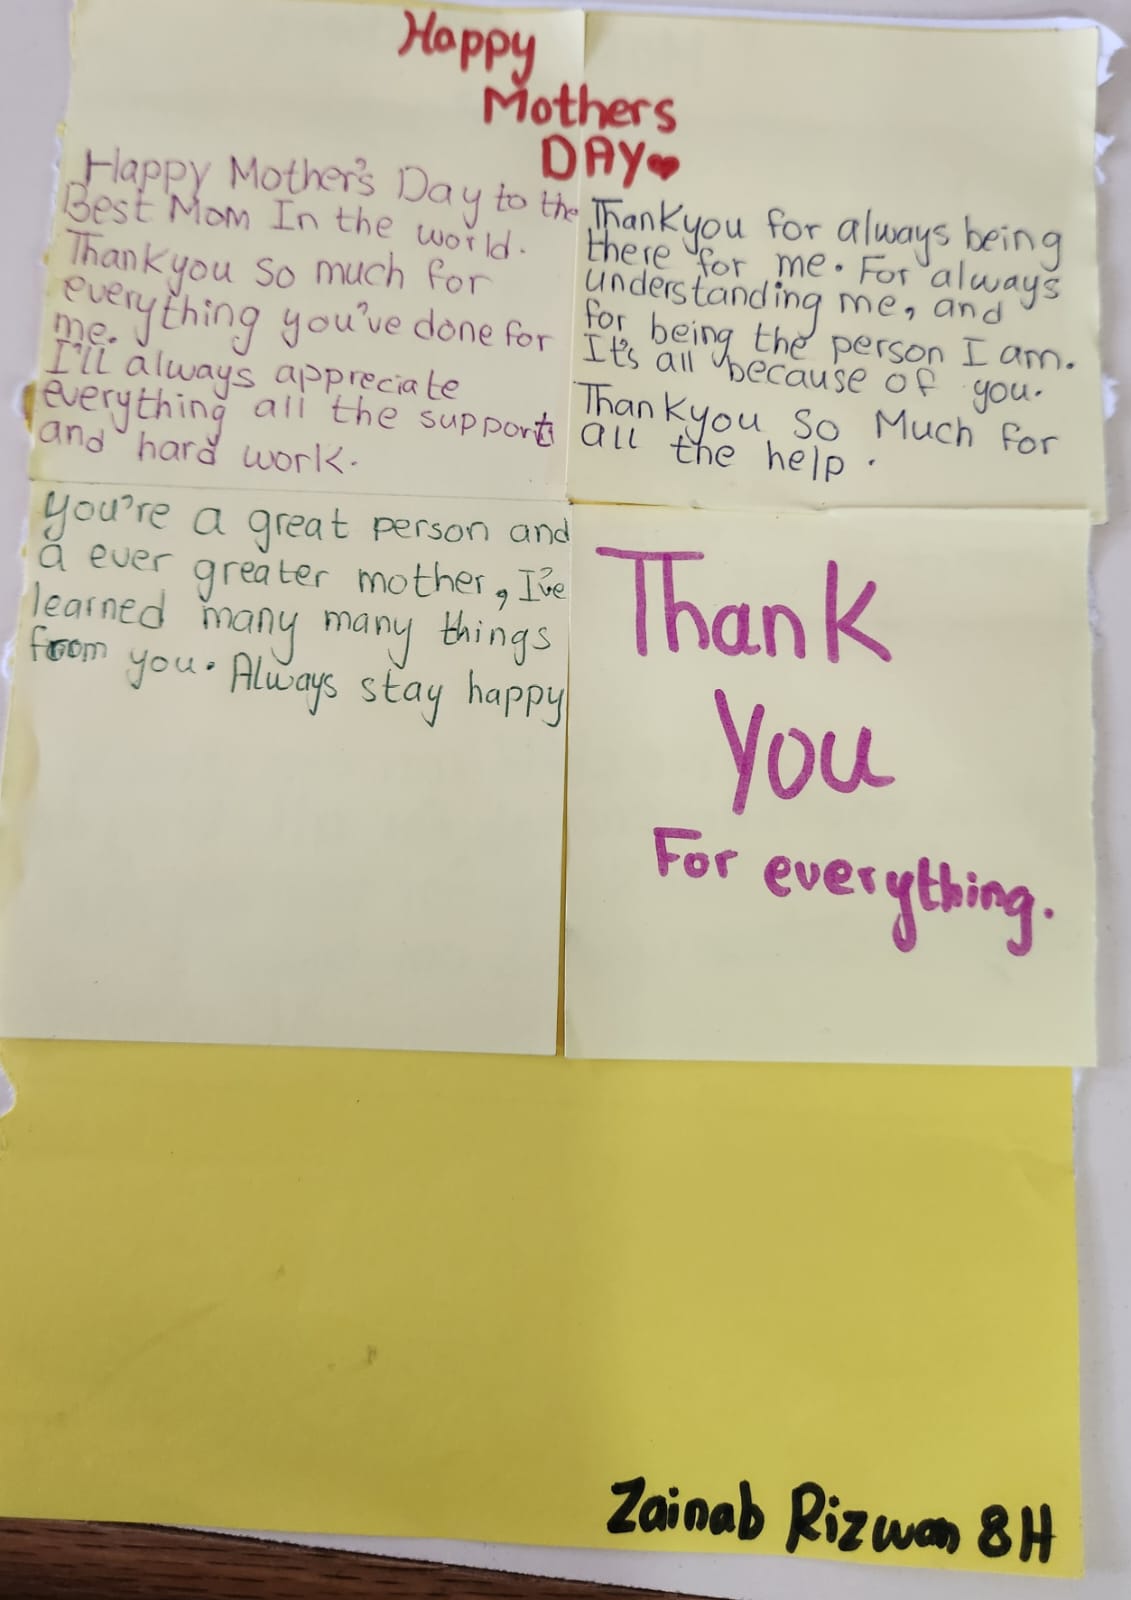 Happy
Mothers
DAY♥
Happy Mother's Day to the
Best Mom In the world.
Thankyou So much for
everything you've done for
me.
I'll always appreciate
everything all the support
and hard work.
Thankyou for always being
there for me. For always
understanding me, and
for being the person I am.
It's all because of you.
Thankyou So Much for
all the help.
You're a great person and
a ever greater mother, I've
learned many many things
from you. Always stay happy
Thank
You
For everything.
Zainab Rizwan 8H